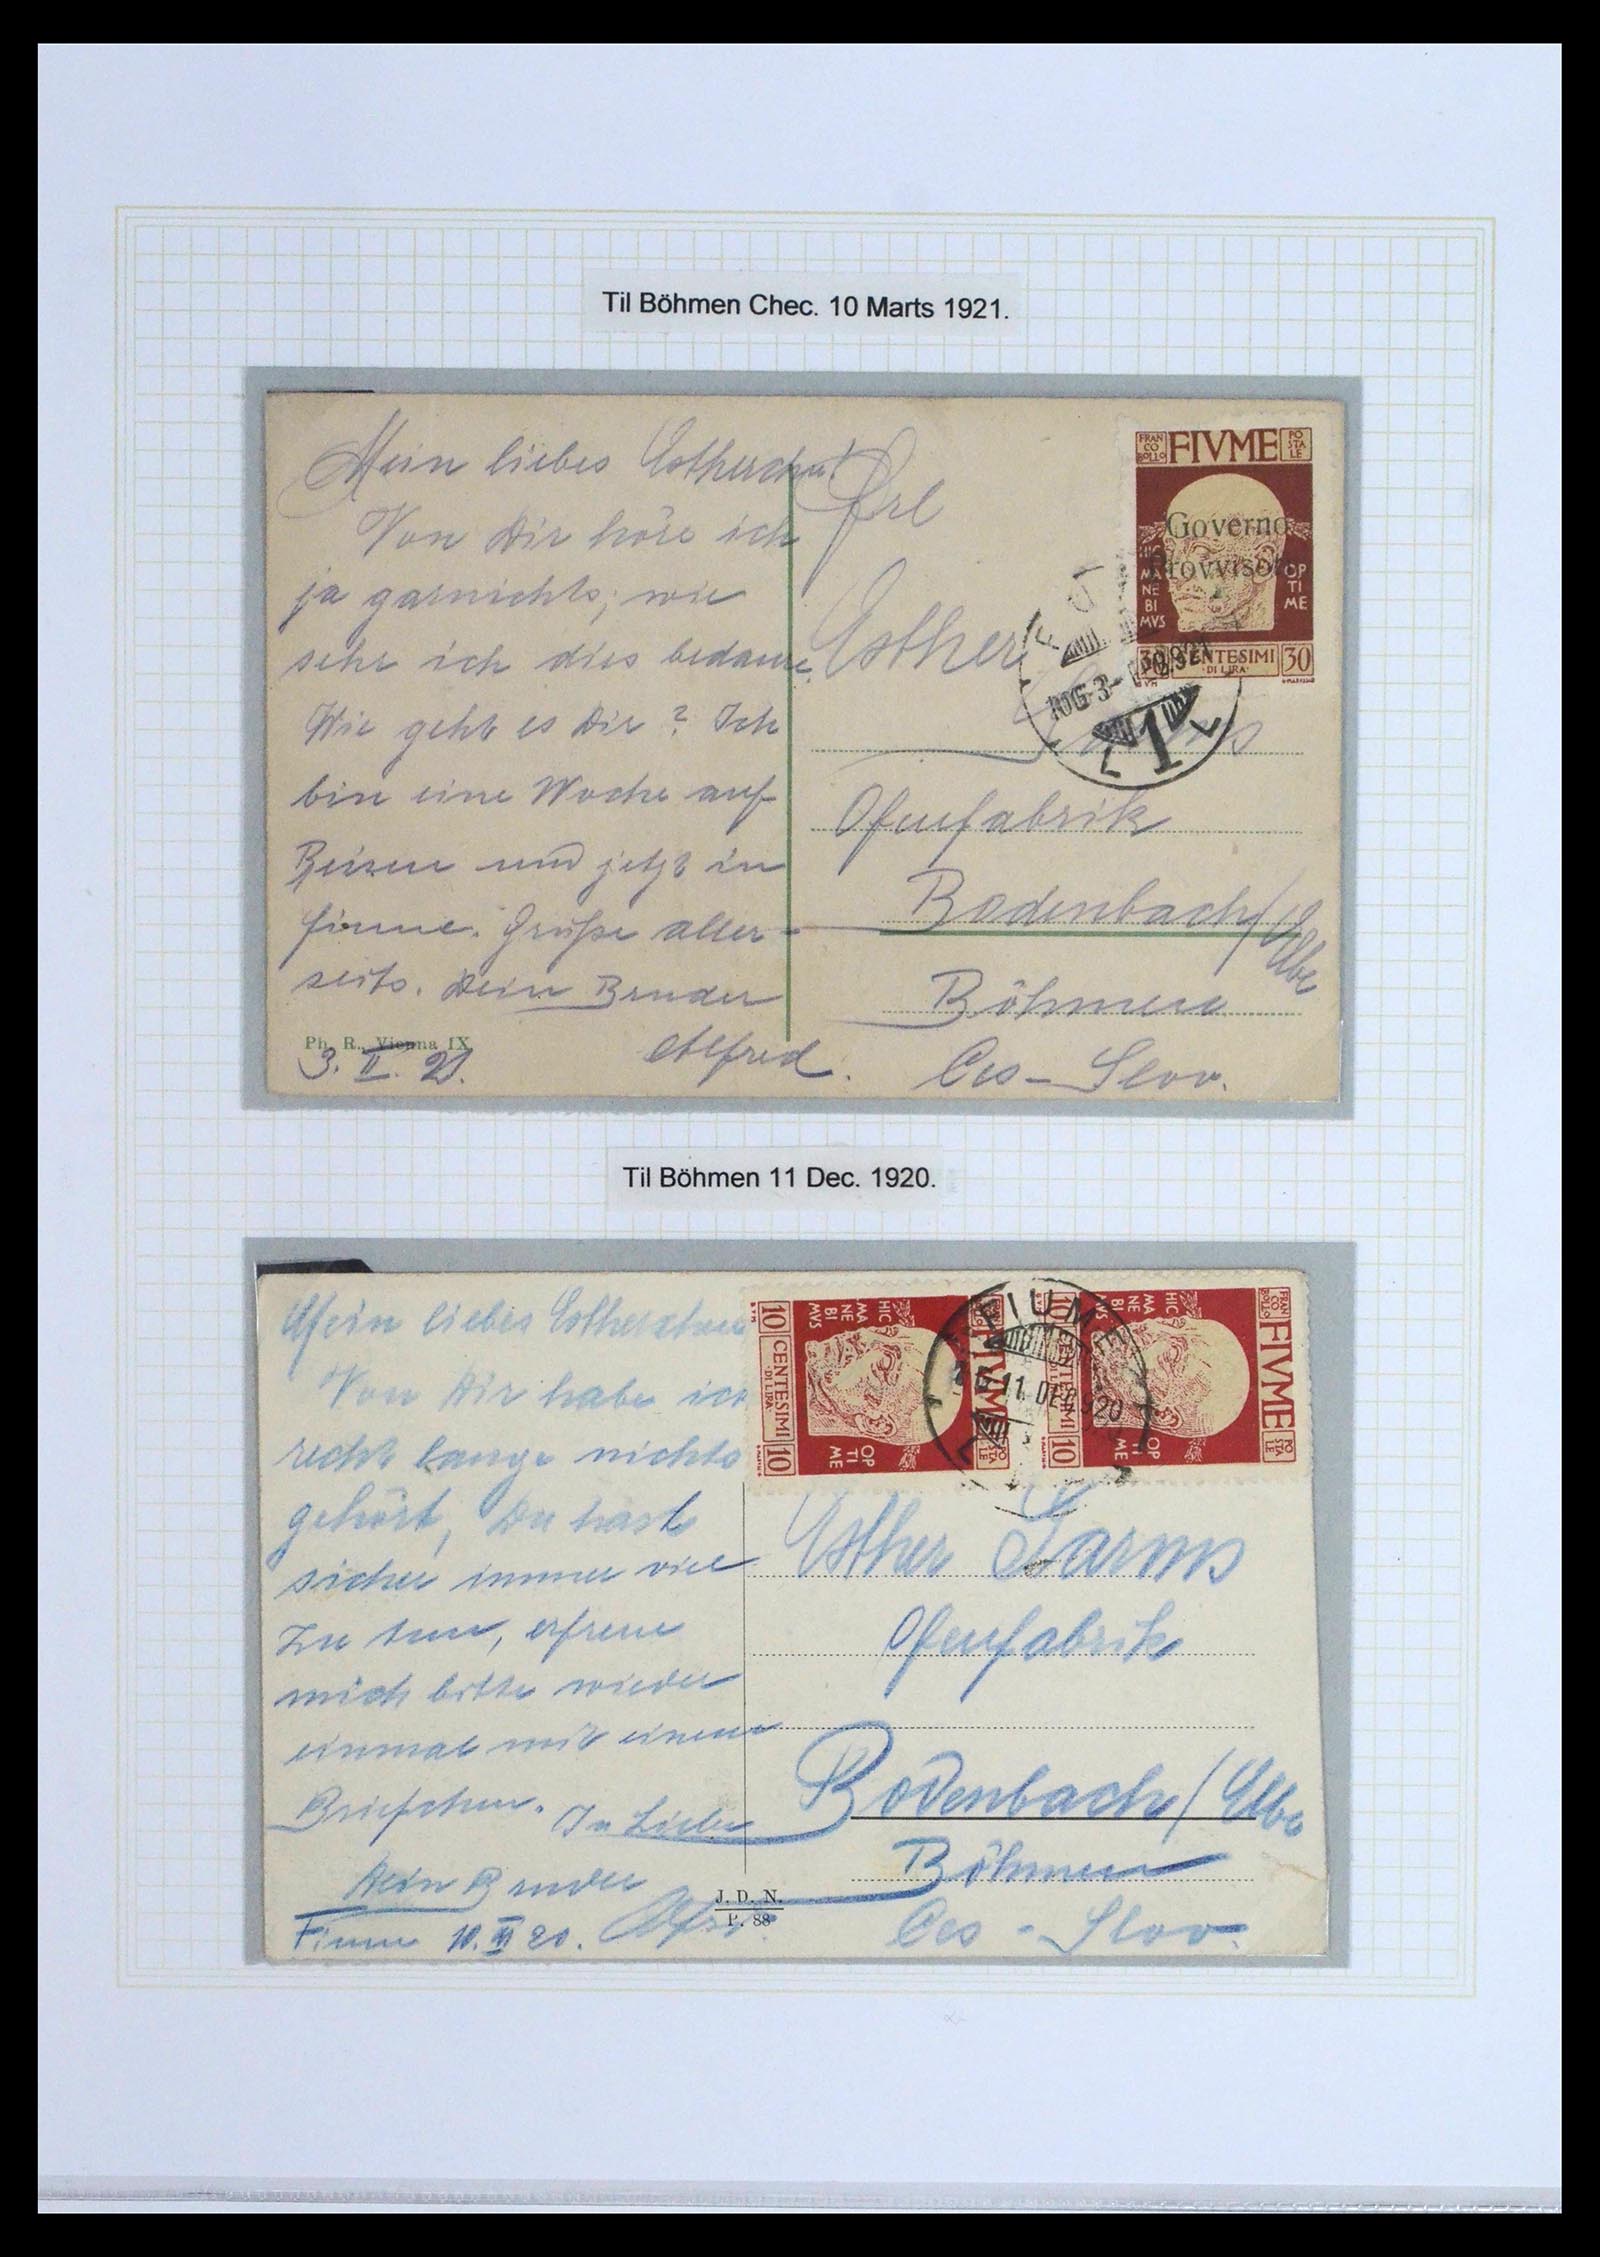 Til Böhmen Chec. 10 Marts 1921.
Mein liebes Estherchen!
Von Dir höre ich
ja garnichts, wie
sehr ich dies bedaure.
Wie geht es Dir? Ich
bin eine Woche auf
Reisen und jetzt in
Fiume. Grüße aller-
seits. Dein Bruder
Alfred.
Ph. R., Vienna IX
3. II. 21.
FRAN
CO
BOLLO
FIVME
PO
STA
LE
Governo
Provvisorio
HIC
MA
NE
BI
MVS
OP
TI
ME
30 CENTESIMI 30
DI LIRA
1
Frl
Esther
Ofenfabrik
Bodenbach/Elbe
Böhmen
Ces-Slov.
Til Böhmen 11 Dec. 1920.
Mein liebes Estherchen
Von Dir habe ich
recht lange nichts
gehört, Du hast
sicher immer viel
zu tun, erfreue
mich bitte wieder
einmal mit einem
Briefchen. In Liebe
Dein Bruder
Fiume 10. XII 20.
J. D. N.
P. 88
HIC
MA
NE
BI
MVS
10 CENTESIMI 10
DI LIRA
OP
TI
ME
FIVME
PO
STA
LE
FIUME
11 DEC 920
HIC
MA
NE
BI
MVS
10 CENTESIMI 10
DI LIRA
OP
TI
ME
FRAN
CO
BOLLO
FIVME
PO
STA
LE
Esther Larms
Ofenfabrik
Bodenbach/Elbe
Böhmen
Ces-Slov.